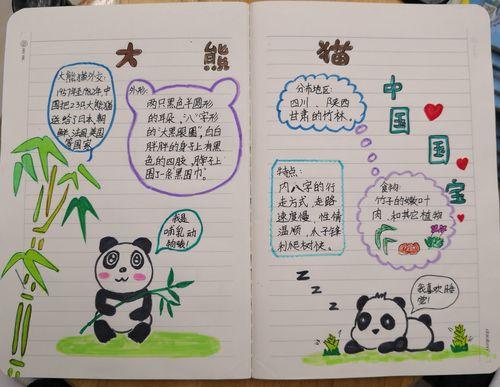 大熊猫
大熊猫外交:
1957年至1982年,中
国把23只大熊猫
送给了日本、朝
鲜、法国、美国
等国家
外形:
两只黑色半圆形
的耳朵,"八"字形
的"大黑眼圈",白白
胖胖的身子上有黑
色的四肢,脖子上
围了一条黑围巾"。
我是
哺乳动
物哦!
分布地区:
四川、陕西
甘肃的竹林。
中
国
国
宝
特点:
内八字的行
走方式,走路
速度慢,性情
温顺,爪子锋
利爬树快。
食物:
竹子的嫩叶
肉、和其它植物
z
z
z
我喜欢睡
觉!